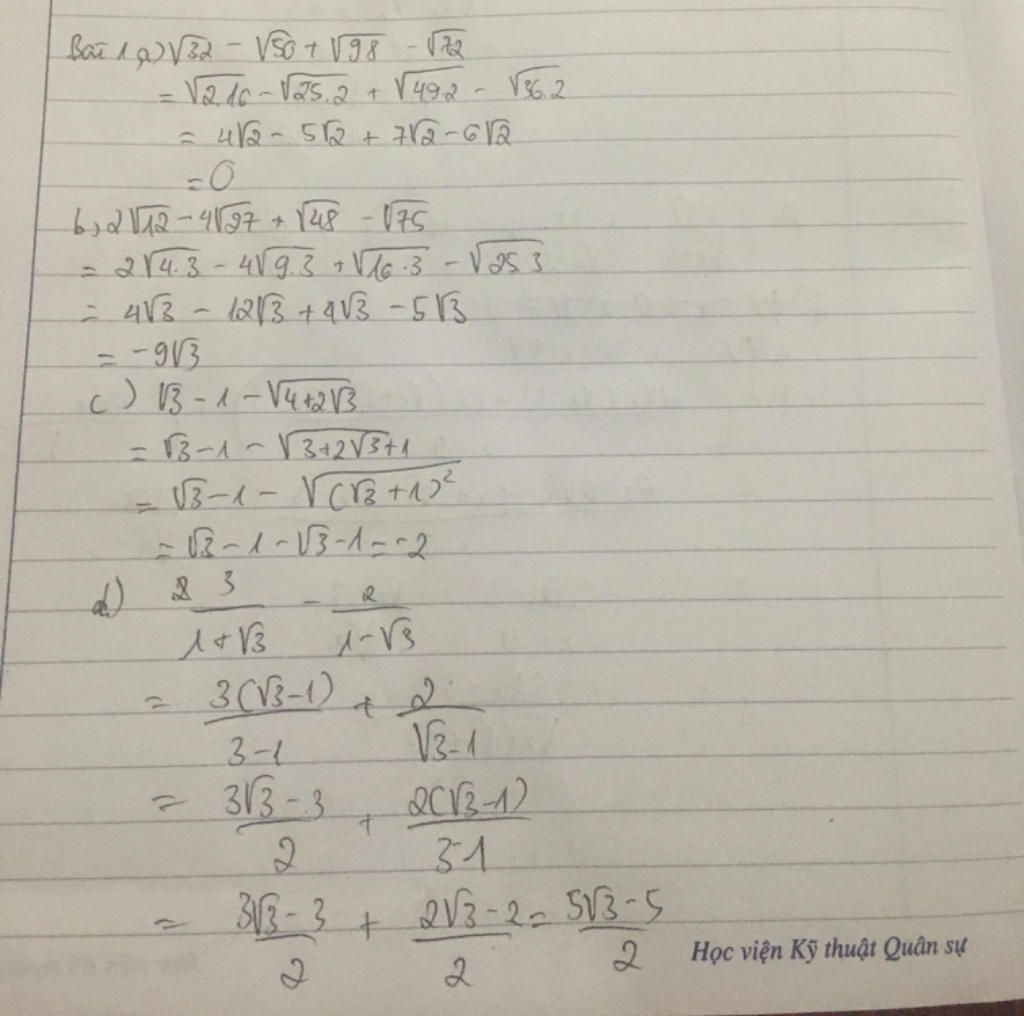 Bài 1 a) √32 - √50 + √98 - √72
= √2.16 - √25.2 + √49.2 - √36.2
= 4√2 - 5√2 + 7√2 - 6√2
= 0
b, 2√12 - 4√27 + √48 - √75
= 2√4.3 - 4√9.3 + √16.3 - √25 3
= 4√3 - 12√3 + 4√3 - 5√3
= -9√3
c) √3 - 1 - √(4+2√3)
= √3 - 1 - √(3+2√3+1)
= √3 - 1 - √((√3+1)²)
= √3 - 1 - √3 - 1 = -2
d) 3/(1+√3) - 2/(1-√3)
= 3(√3-1)/(3-1) + 2/(√3-1)
= (3√3-3)/2 + 2(√3-1)/(3-1)
= (3√3-3)/2 + (2√3-2)/2 = (5√3-5)/2
Học viện Kỹ thuật Quân sự